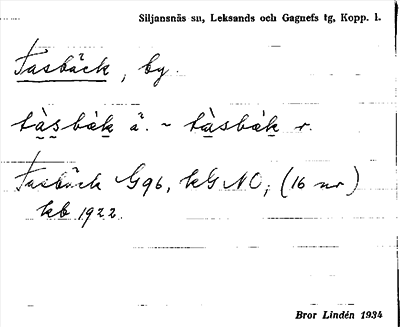 Siljansnäs sn, Leksands och Gagnefs tg, Kopp. l.
Tasbäck, by.
tàsbäk ä. ~ tàsbäk r.
Tasbäck G96, kGNO; (16 nr)
kb 1922.
Bror Lindén 1934